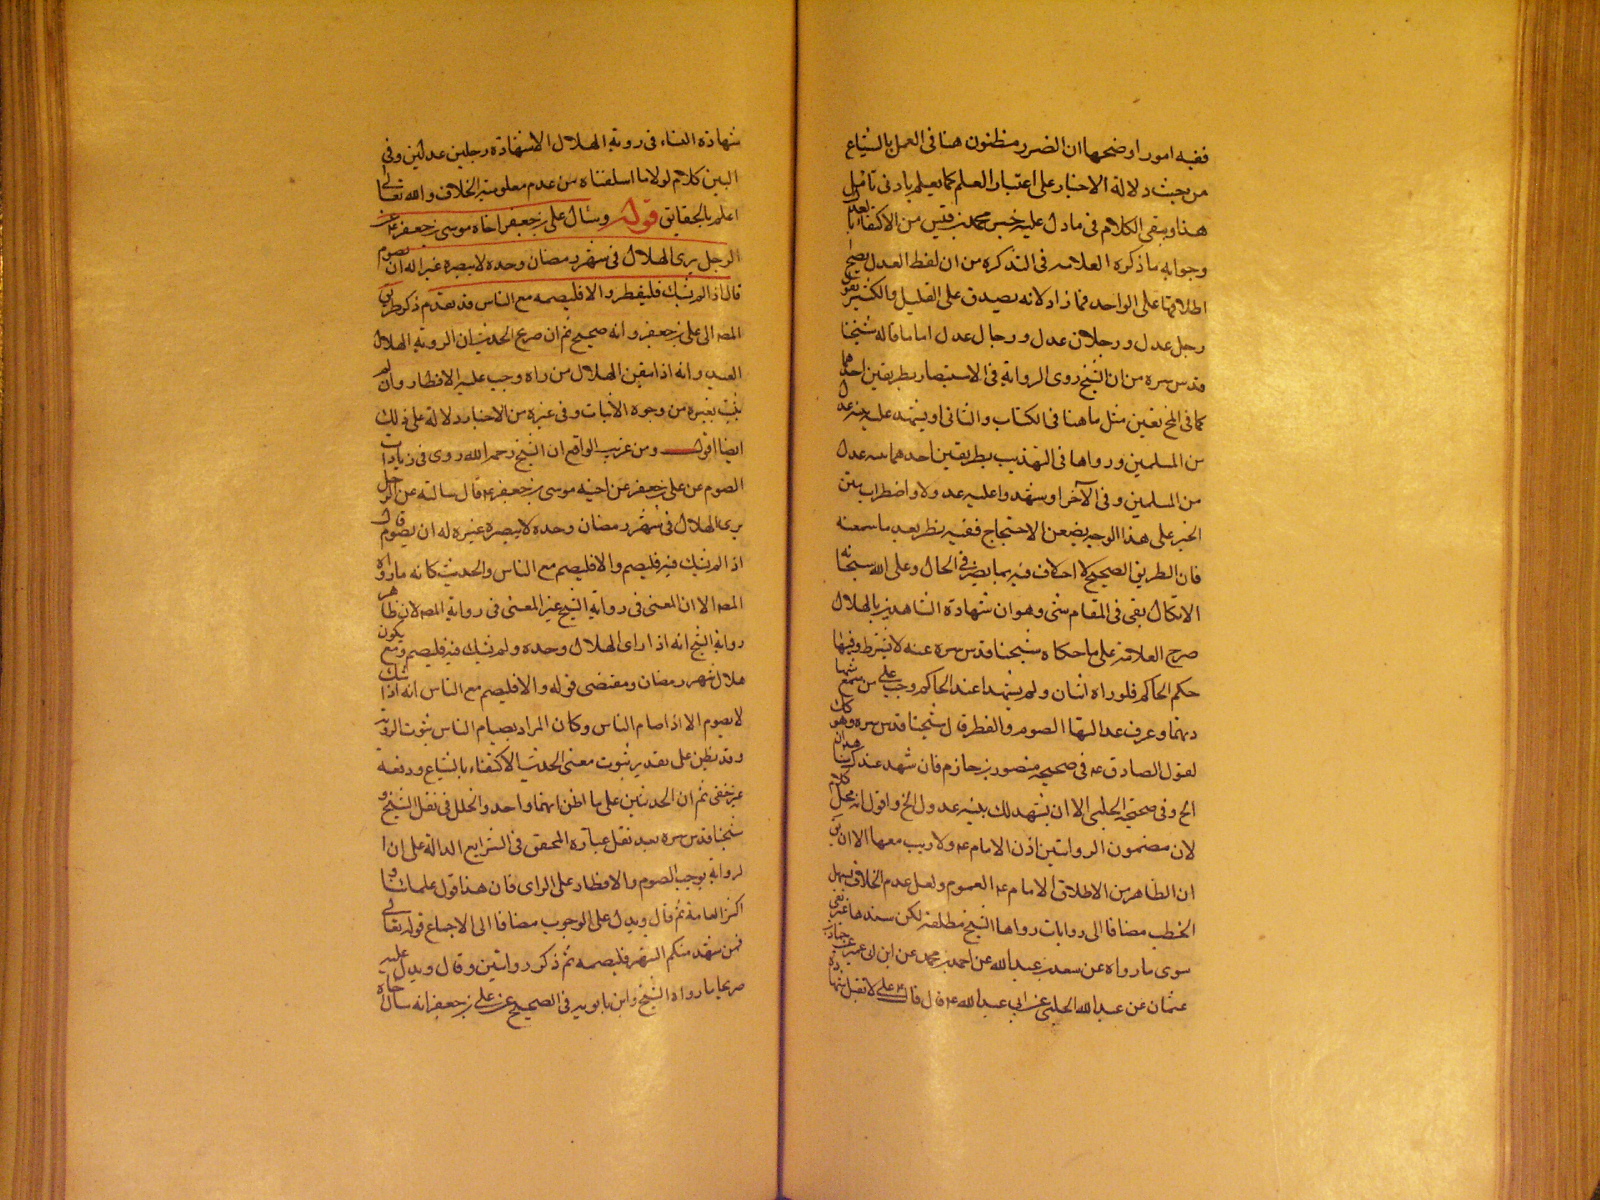 ففيه امور اوضحها ان الضرر مظنون هنا فى العمل بالشياع
من حيث دلالة الاخبار على اعتبار العلم كما يعلم بادنى تامل
هذا ويبقى الكلام فى ما دل عليه خبر محمد بن قيس من الاكتفاء بالعدل
وجوابه ما ذكره العلامه فى التذكره من ان لفظ العدل يصح
اطلاقها على الواحد فما زاد لانه يصدق على القليل والكثير تقول
رجل عدل ورجلان عدل ورجال عدل اما ما قاله شيخنا
قدس سره من ان الشيخ روى الرواية فى الاستبصار بطريقين احدهما
كما فى المخ تعين مثل ما هنا فى الكتاب والثانى او يشهد عليه بينه عدل
من المسلمين ورواها فى التهذيب بطريقين احدهما بينه عدل
من المسلمين وفى الآخر او يشهد واعليه عدولا واضطراب متن
الخبر على هذا الوجه يضعف الاحتجاج ففيه نظر بعد ما سمعته
فان الطريق الصحيح لا اختلاف فيه بما يضر فى الحال وعلى الله سبحانه
الاتكال بقى فى المقام شئ وهو ان شهادة الشاهدين بالهلال
صرح العلامة على ما حكاه شيخنا قدس سره عنه لا يشترط فيها
حكم الحاكم فلو راه اثنان ولم يشهدا عند الحاكم وجب على من سمع شهادتهما
وعرف عدالتها الصوم والفطر قال شيخنا قدس سره وهو كك
لقول الصادق عه فى صحيحة منصور بن حازم فان شهد عندك شاهدان
الخ وفى صحيحة الحلبى الا ان يشهد لك بينه عدول الخ واقول انه محل كلام
لان مضمون الروايتين اذن الامام عه ولا ريب معها الا ان يق
ان الظاهر من الاطلاق الامام عه العموم ولعل عدم الخلاف يسهل
الخطب مضافا الى روايات رواها الشيخ مطلقة لكن سندها غير نقى
سوى ما رواه عن سعد بن عبد الله عن احمد بن محمد عن ابن ابى عمير عن حماد بن
عثمان عن عبد الله الحلبى عن ابى عبد الله عه قال قال على عه لا تقبل شهادة
شهادة النساء فى روية الهلال الا شهادة رجلين عدلين وفى
البين كلام لولا ما اسلفناه من عدم معلومية الخلاف والله تعالى
اعلم بالحقايق قوله وسال على بن جعفر اخاه موسى بن جعفر عه عن
الرجل يرى الهلال فى شهر رمضان وحده لا يبصره غيره اله ان يصوم
قال اذا لم يشك فليفطر والا فليصمه مع الناس قد تقدم ذكر طريق
المصه الى على بن جعفر وانه صحيح ثم ان صريح الحديث ان الروية الهلال
العيد وانه اذا تيقن الهلال من راه وجب عليه الافطار وان لم
يثبت بغيره من وجوه الاثبات وفى غيره من الاخبار دلالة على ذلك
ايضا اقول ومن غريب الواقع ان الشيخ رحمه الله روى فى زيادات
الصوم عن على بن جعفر عن اخيه موسى بن جعفر عه قال سالته عن الرجل
يرى الهلال فى شهر رمضان وحده لا يبصره غيره له ان يصوم قال
اذا لم يشك فيه فليصم والا فليصم مع الناس والحديث كانه ما رواه
المصه الا ان المعنى فى رواية الشيخ غير المعنى فى رواية المصه لان ظاهر
رواية الشيخ انه اذا راى الهلال وحده ولم يشك فيه فليصم ويكون مع
هلال شهر رمضان ومقتضى قوله والا فليصم مع الناس انه اذا شك
لا يصوم الا اذا صام الناس وكان المراد بصيام الناس ثبوت الروية
وقد يظن على تقدير ثبوت معنى الحديث الاكتفاء بالشياع ودفعه
غير خفى ثم ان الحديثين على ما اظن انهما واحد والخلل فى نقل الشيخ و
شيخنا قدس سره بعد نقل عبارة المحقق فى الشرايع الدالة على ان ا
لرواية يوجب الصوم والافطار على الراى قال هذا قول علمائنا و
اكثر العامة ثم قال ويدل على الوجوب مضافا الى الاجماع قوله تعالى
فمن شهد منكم الشهر فليصمه ثم ذكر روايتين وقال ويدل عليه
صريحا ما رواه الشيخ وابن بابويه فى الصحيح عن على بن جعفر انه سال اخاه